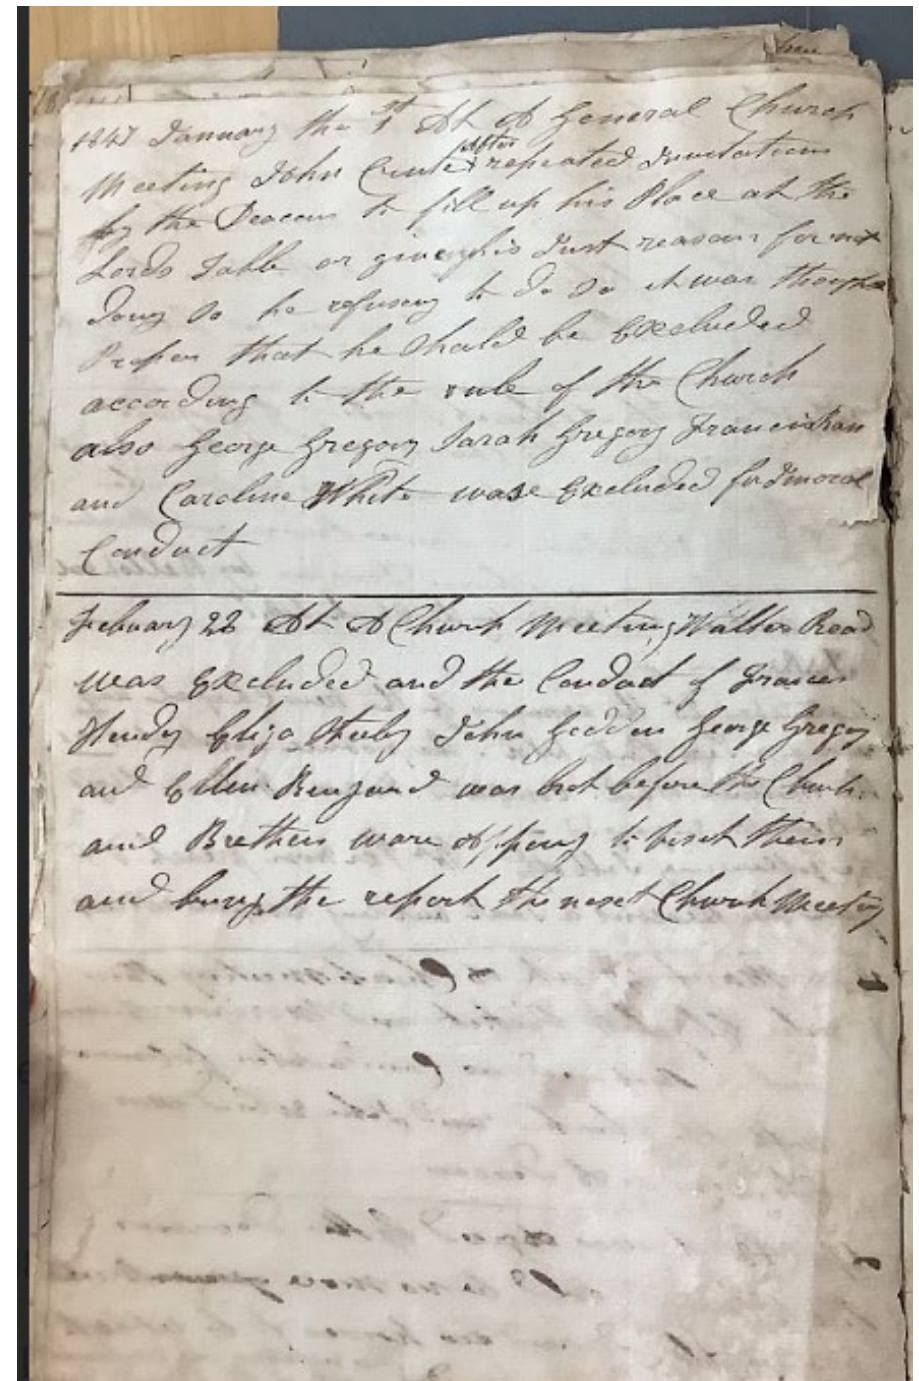 1847 January the 1st At A General Church
Meeting John after repeated Invitations
by the Deacons to fill up his Place at the
Lords Table or giveing his Just reasons for not
doing so he refusing to do so it was thought
Proper that he Should be Excluded
according to the rule of the Church
also George Gregory Sarah Gregory
and Caroline White wase Excluded for Imoral
Conduct
February 22 At A Church Meeting Walter Read
was Excluded and the Conduct of Frances
Hendy Eliza John George Gregory
and Ellen was brot before the Church
and Brethren ware to visit them
and bring the report the next Church Meeting